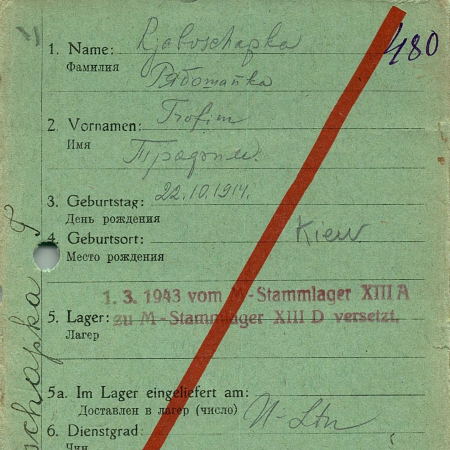 480
1. Name: Rjaboschapka
Фамилия Рябошапка
2. Vornamen: Trofim
Имя Трофим
3. Geburtstag: 22.10.1914.
День рождения
4. Geburtsort: Kiew
Место рождения
1. 3. 1943 vom M-Stammlager XIII A
5. Lager: zu M-Stammlager XIII D versetzt.
Лагер
5a. Im Lager eingeliefert am:
Доставлен в лагер (число)
6. Dienstgrad: U-Ltn
Чин
schapka T